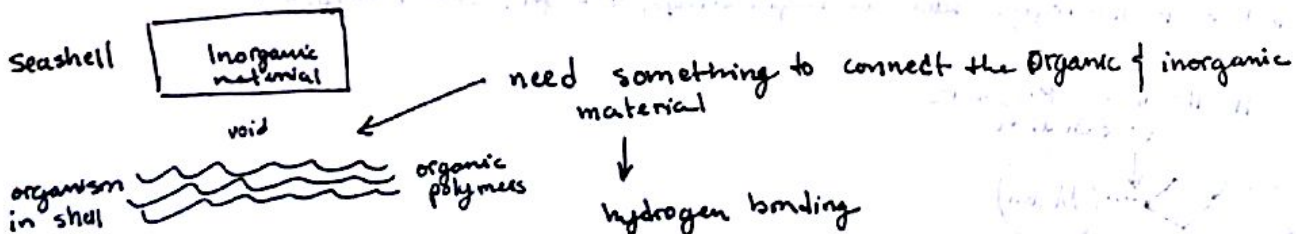 Seashell
Inorganic
material
need something to connect the Organic & inorganic
material
void
organism
in shell
organic
polymers
hydrogen bonding